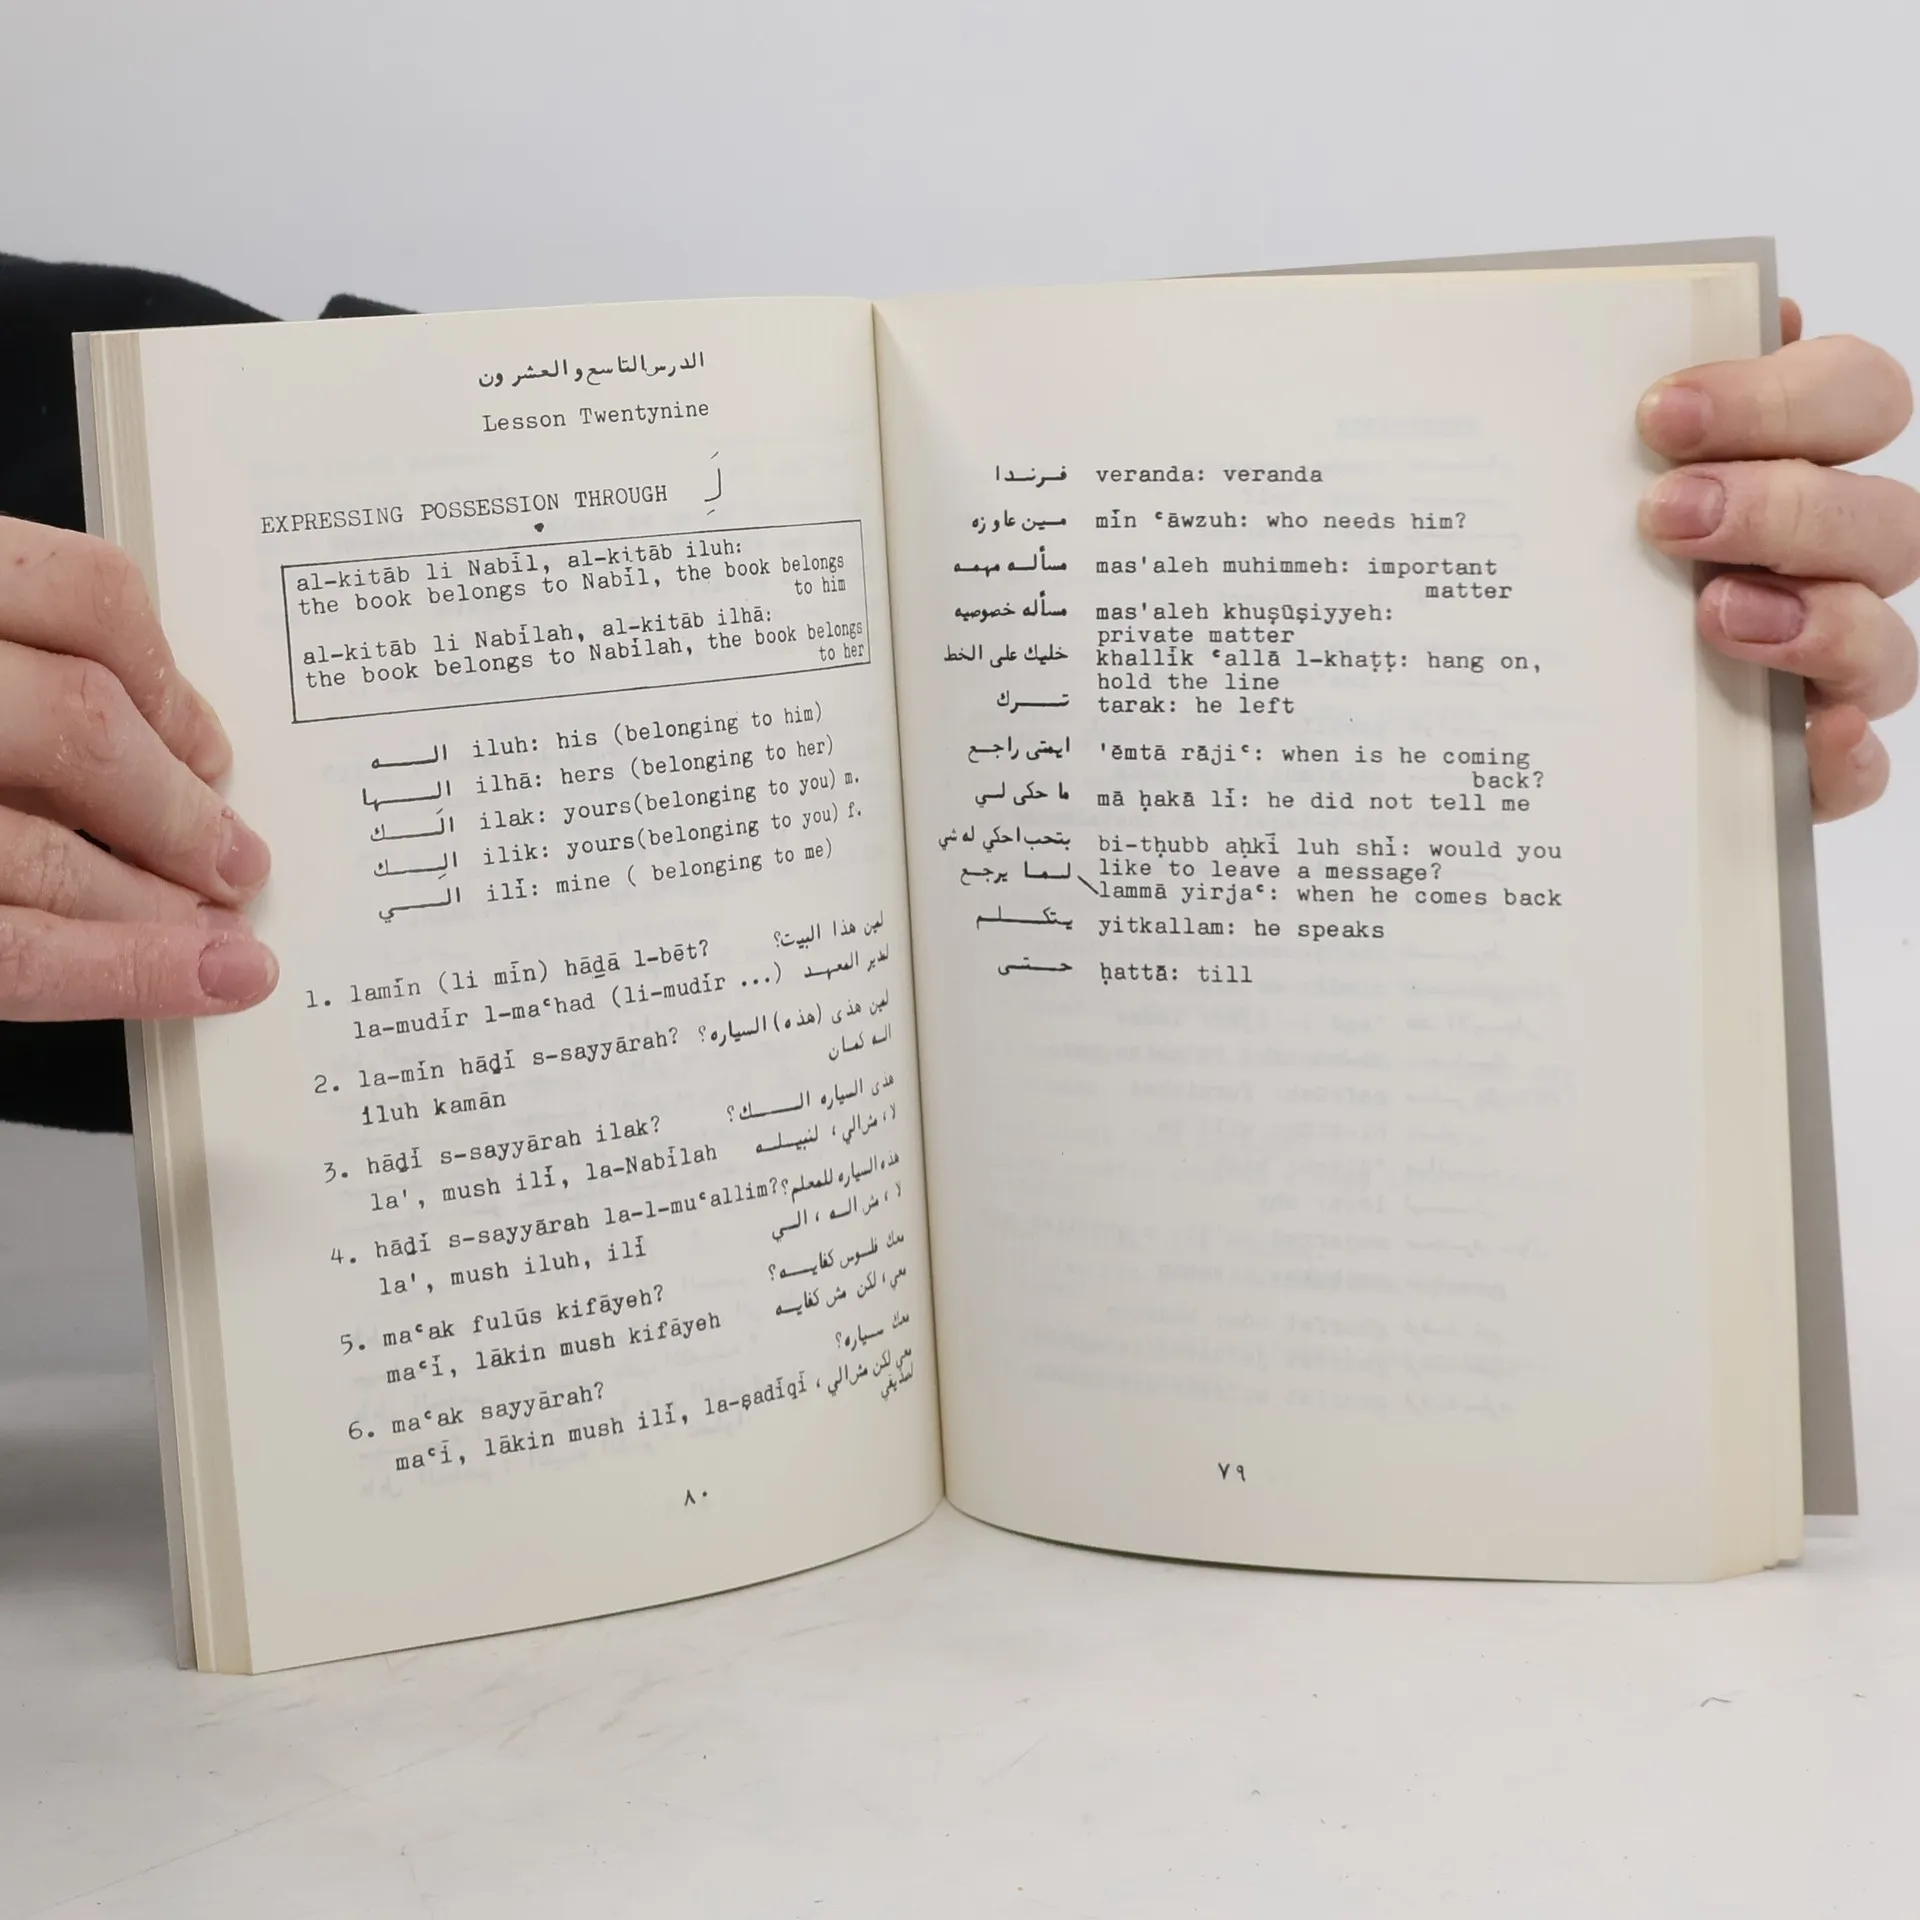 الدرس التاسع و العشرون
Lesson Twentynine
EXPRESSING POSSESSION THROUGH لَِ
al-kitāb li Nabīl, al-kitāb iluh:
the book belongs to Nabīl, the book belongs
to him
al-kitāb li Nabīlah, al-kitāb ilhā:
the book belongs to Nabīlah, the book belongs
to her
الـــه iluh: his (belonging to him)
الـــها ilhā: hers (belonging to her)
الَـــك ilak: yours(belonging to you) m.
الِـــك ilik: yours(belonging to you) f.
الـــي ilī: mine ( belonging to me)
1. lamīn (li mīn) hāḏā l-bēt? لمين هذا البيت؟
la-mudīr l-maᶜhad (li-mudīr ...) لمدير المعهـد
2. la-mīn hāḏī s-sayyārah? لمين هذى (هذه) السياره؟
iluh kamān الـه كمان
3. hāḏī s-sayyārah ilak? هذى السياره الـــك؟
la', mush ilī, la-Nabīlah لا، مش الي، لنبيلـه
4. hāḏī s-sayyārah la-l-muᶜallim? هذه السياره للمعلم؟
la', mush iluh, ilī لا، مش الـه، الـي
5. maᶜak fulūs kifāyeh? معك فلـوس كفايـه؟
maᶜī, lākin mush kifāyeh معي، لكن مش كفايـه
6. maᶜak sayyārah? معك سياره؟
maᶜī, lākin mush ilī, la-ṣadīqī معي لكن مش الي، لصديقي
٨٠
فـرنـدا veranda: veranda
مـين عاوزه mīn ᶜāwzuh: who needs him?
مسألـه مهمـه mas'aleh muhimmeh: important
matter
مسأله خصوصيه mas'aleh khuṣūṣiyyeh:
private matter
خليك على الخط khallīk ᶜallā l-khaṭṭ: hang on,
hold the line
تـــرك tarak: he left
ايمتى راجـع 'ēmtā rājiᶜ: when is he coming
back?
ما حكى لـي mā ḥakā lī: he did not tell me
بتحب احكي له شي bi-tḥubb aḥkī luh shī: would you
like to leave a message?
لـمـا يرجـع lammā yirjaᶜ: when he comes back
يتكـــلـم yitkallam: he speaks
حـتـى ḥattā: till
٧٩